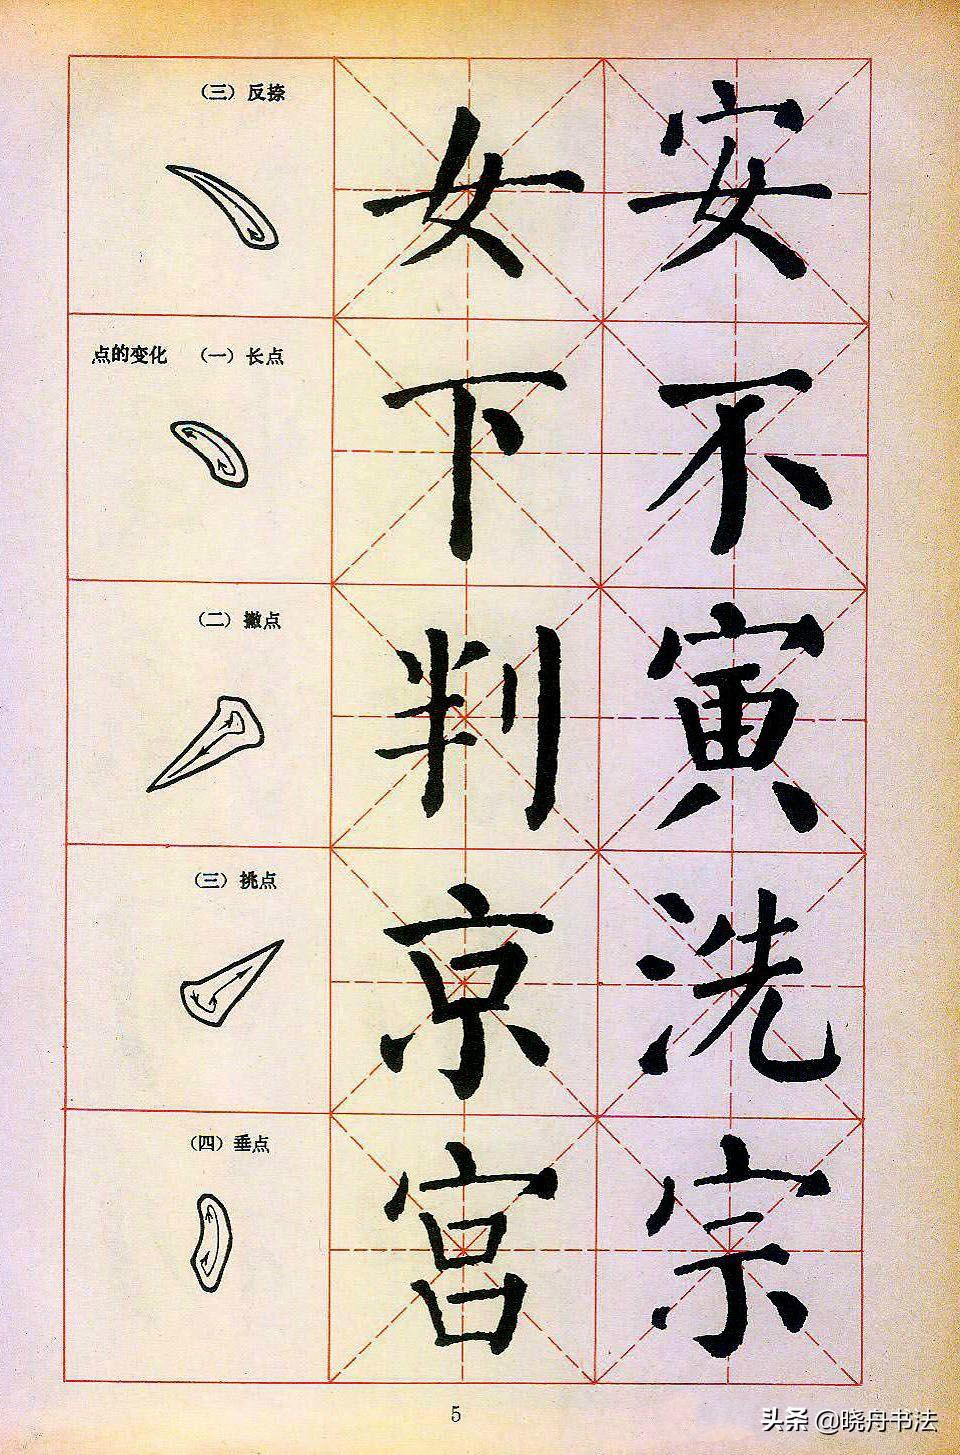 （三）反捺
女 安
点的变化 （一）长点
下 不
（二）撇点
判 寅
（三）挑点
京 洗
（四）垂点
宫 宗
5
头条 @晓舟书法